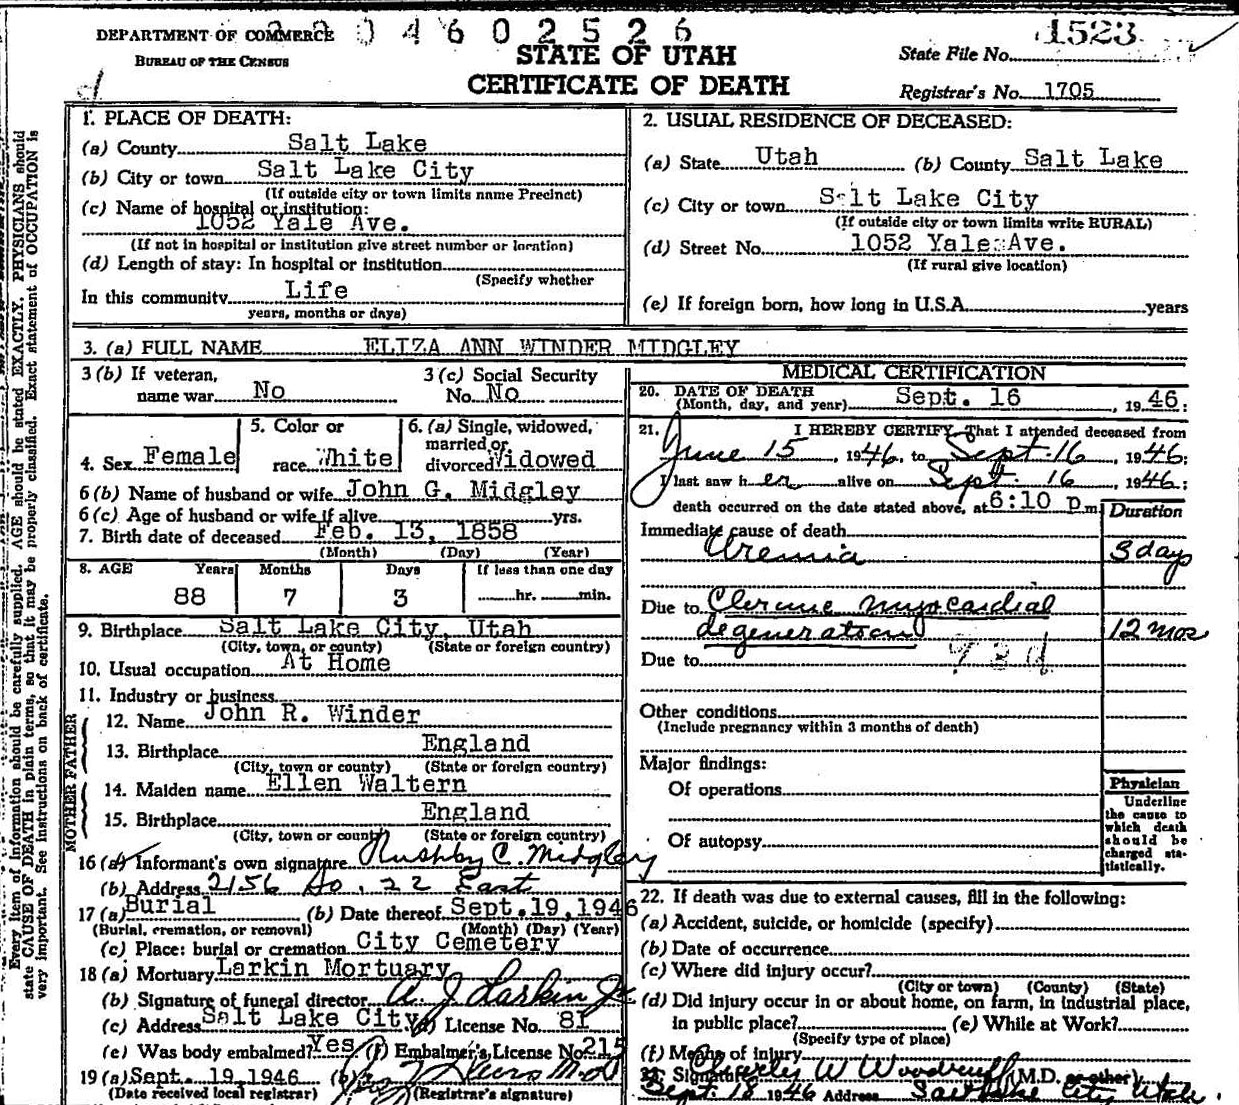 2 2 0 4 6 0 2 5 2 6
1523
DEPARTMENT OF COMMERCE
BUREAU OF THE CENSUS
STATE OF UTAH
CERTIFICATE OF DEATH
State File No.
Registrar's No. 1705
d
Every item of information should be carefully supplied. AGE should be stated EXACTLY. PHYSICIANS should
state CAUSE OF DEATH in plain terms, so that it may be properly classified. Exact statement of OCCUPATION is
very important. See instructions on back of certificate.
1. PLACE OF DEATH:
(a) County Salt Lake
(b) City or town Salt Lake City
(If outside city or town limits name Precinct)
(c) Name of hospital or institution:
1052 Yale Ave.
(If not in hospital or institution give street number or location)
(d) Length of stay: In hospital or institution
(Specify whether
In this community Life
years, months or days)
2. USUAL RESIDENCE OF DECEASED:
(a) State Utah (b) County Salt Lake
(c) City or town Salt Lake City
(If outside city or town limits write RURAL)
(d) Street No. 1052 Yale Ave.
(If rural give location)
(e) If foreign born, how long in U.S.A. years
3. (a) FULL NAME ELIZA ANN WINDER MIDGLEY
3 (b) If veteran, name war No
3 (c) Social Security No. No
4. Sex Female
5. Color or race White
6. (a) Single, widowed, married or divorced Widowed
6 (b) Name of husband or wife John G. Midgley
6 (c) Age of husband or wife if alive yrs.
7. Birth date of deceased Feb. 13, 1858
(Month) (Day) (Year)
8. AGE Years Months Days If less than one day
88 7 3 hr. min.
9. Birthplace Salt Lake City, Utah
(City, town, or county) (State or foreign country)
10. Usual occupation At Home
11. Industry or business
FATHER
12. Name John R. Winder
13. Birthplace England
(City, town or county) (State or foreign country)
MOTHER
14. Maiden name Ellen Waltern
15. Birthplace England
(City, town or county) (State or foreign country)
16 (a) Informant's own signature Rushby C. Midgley
(b) Address 2156 So. 22 East
17 (a) Burial (b) Date thereof Sept. 19, 1946
(Burial, cremation, or removal) (Month) (Day) (Year)
(c) Place: burial or cremation City Cemetery
18 (a) Mortuary Larkin Mortuary
(b) Signature of funeral director A J Larkin Jr
(c) Address Salt Lake City (d) License No. 81
(e) Was body embalmed? Yes (f) Embalmer's License No. 215
19 (a) Sept. 19, 1946 (b)
(Date received local registrar) (Registrar's signature)
MEDICAL CERTIFICATION
20. DATE OF DEATH
(Month, day, and year) Sept. 16, 1946;
21. I HEREBY CERTIFY, That I attended deceased from
June 15, 1946, to Sept. 16, 1946;
I last saw her alive on Sept. 16, 1946;
death occurred on the date stated above, at 6:10 p.m.
Duration
Immediate cause of death
Uremia 3 days
Due to Chronic myocardial
degeneration 12 mos
93d
Due to
Other conditions
(Include pregnancy within 3 months of death)
Major findings:
Of operations
Of autopsy
Physician
Underline
the cause to
which death
should be
charged sta-
tistically.
22. If death was due to external causes, fill in the following:
(a) Accident, suicide, or homicide (specify)
(b) Date of occurrence
(c) Where did injury occur?
(City or town) (County) (State)
(d) Did injury occur in or about home, on farm, in industrial place,
in public place? (e) While at Work?
(Specify type of place)
(f) Means of injury
23. Signature Charles W Woodruff (M.D. or other)
Sept. 18 1946 Address Salt Lake City Utah.